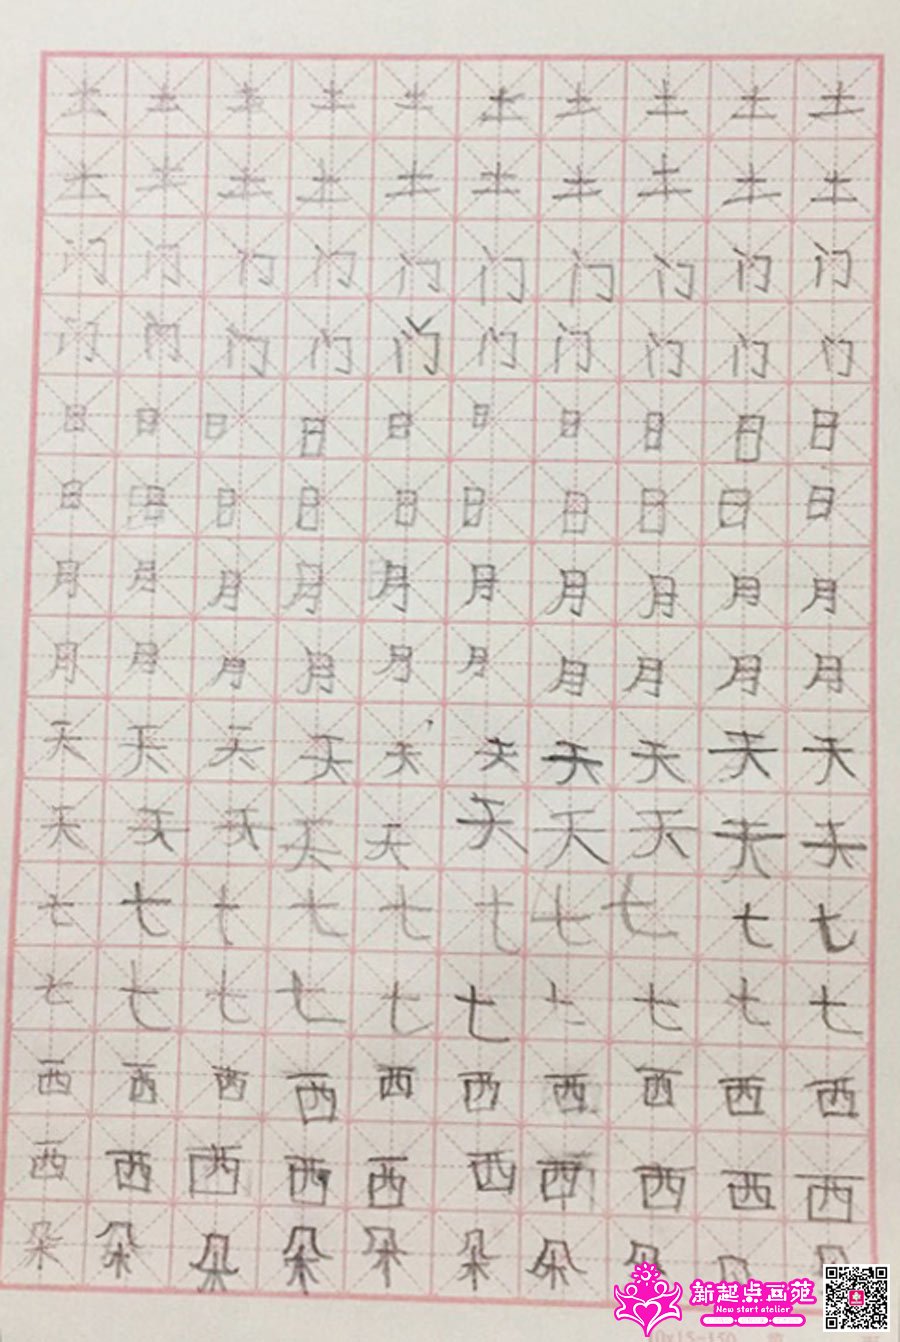 土土土土土土土土土土
土土土土土土土土土土
门门门门门门门门门门
门门门门门门门门门门
日日日日日日日日日日
日日日日日日日日日日
月月月月月月月月月月
月月月月月月月月月月
天天天天天天天天天天
天天天天天天天天天天
七七七七七七七七七七
七七七七七七七七七七
西西西西西西西西西西
西西西西西西西西西西
朵朵朵朵朵朵朵朵
新起点画苑
New start atelier